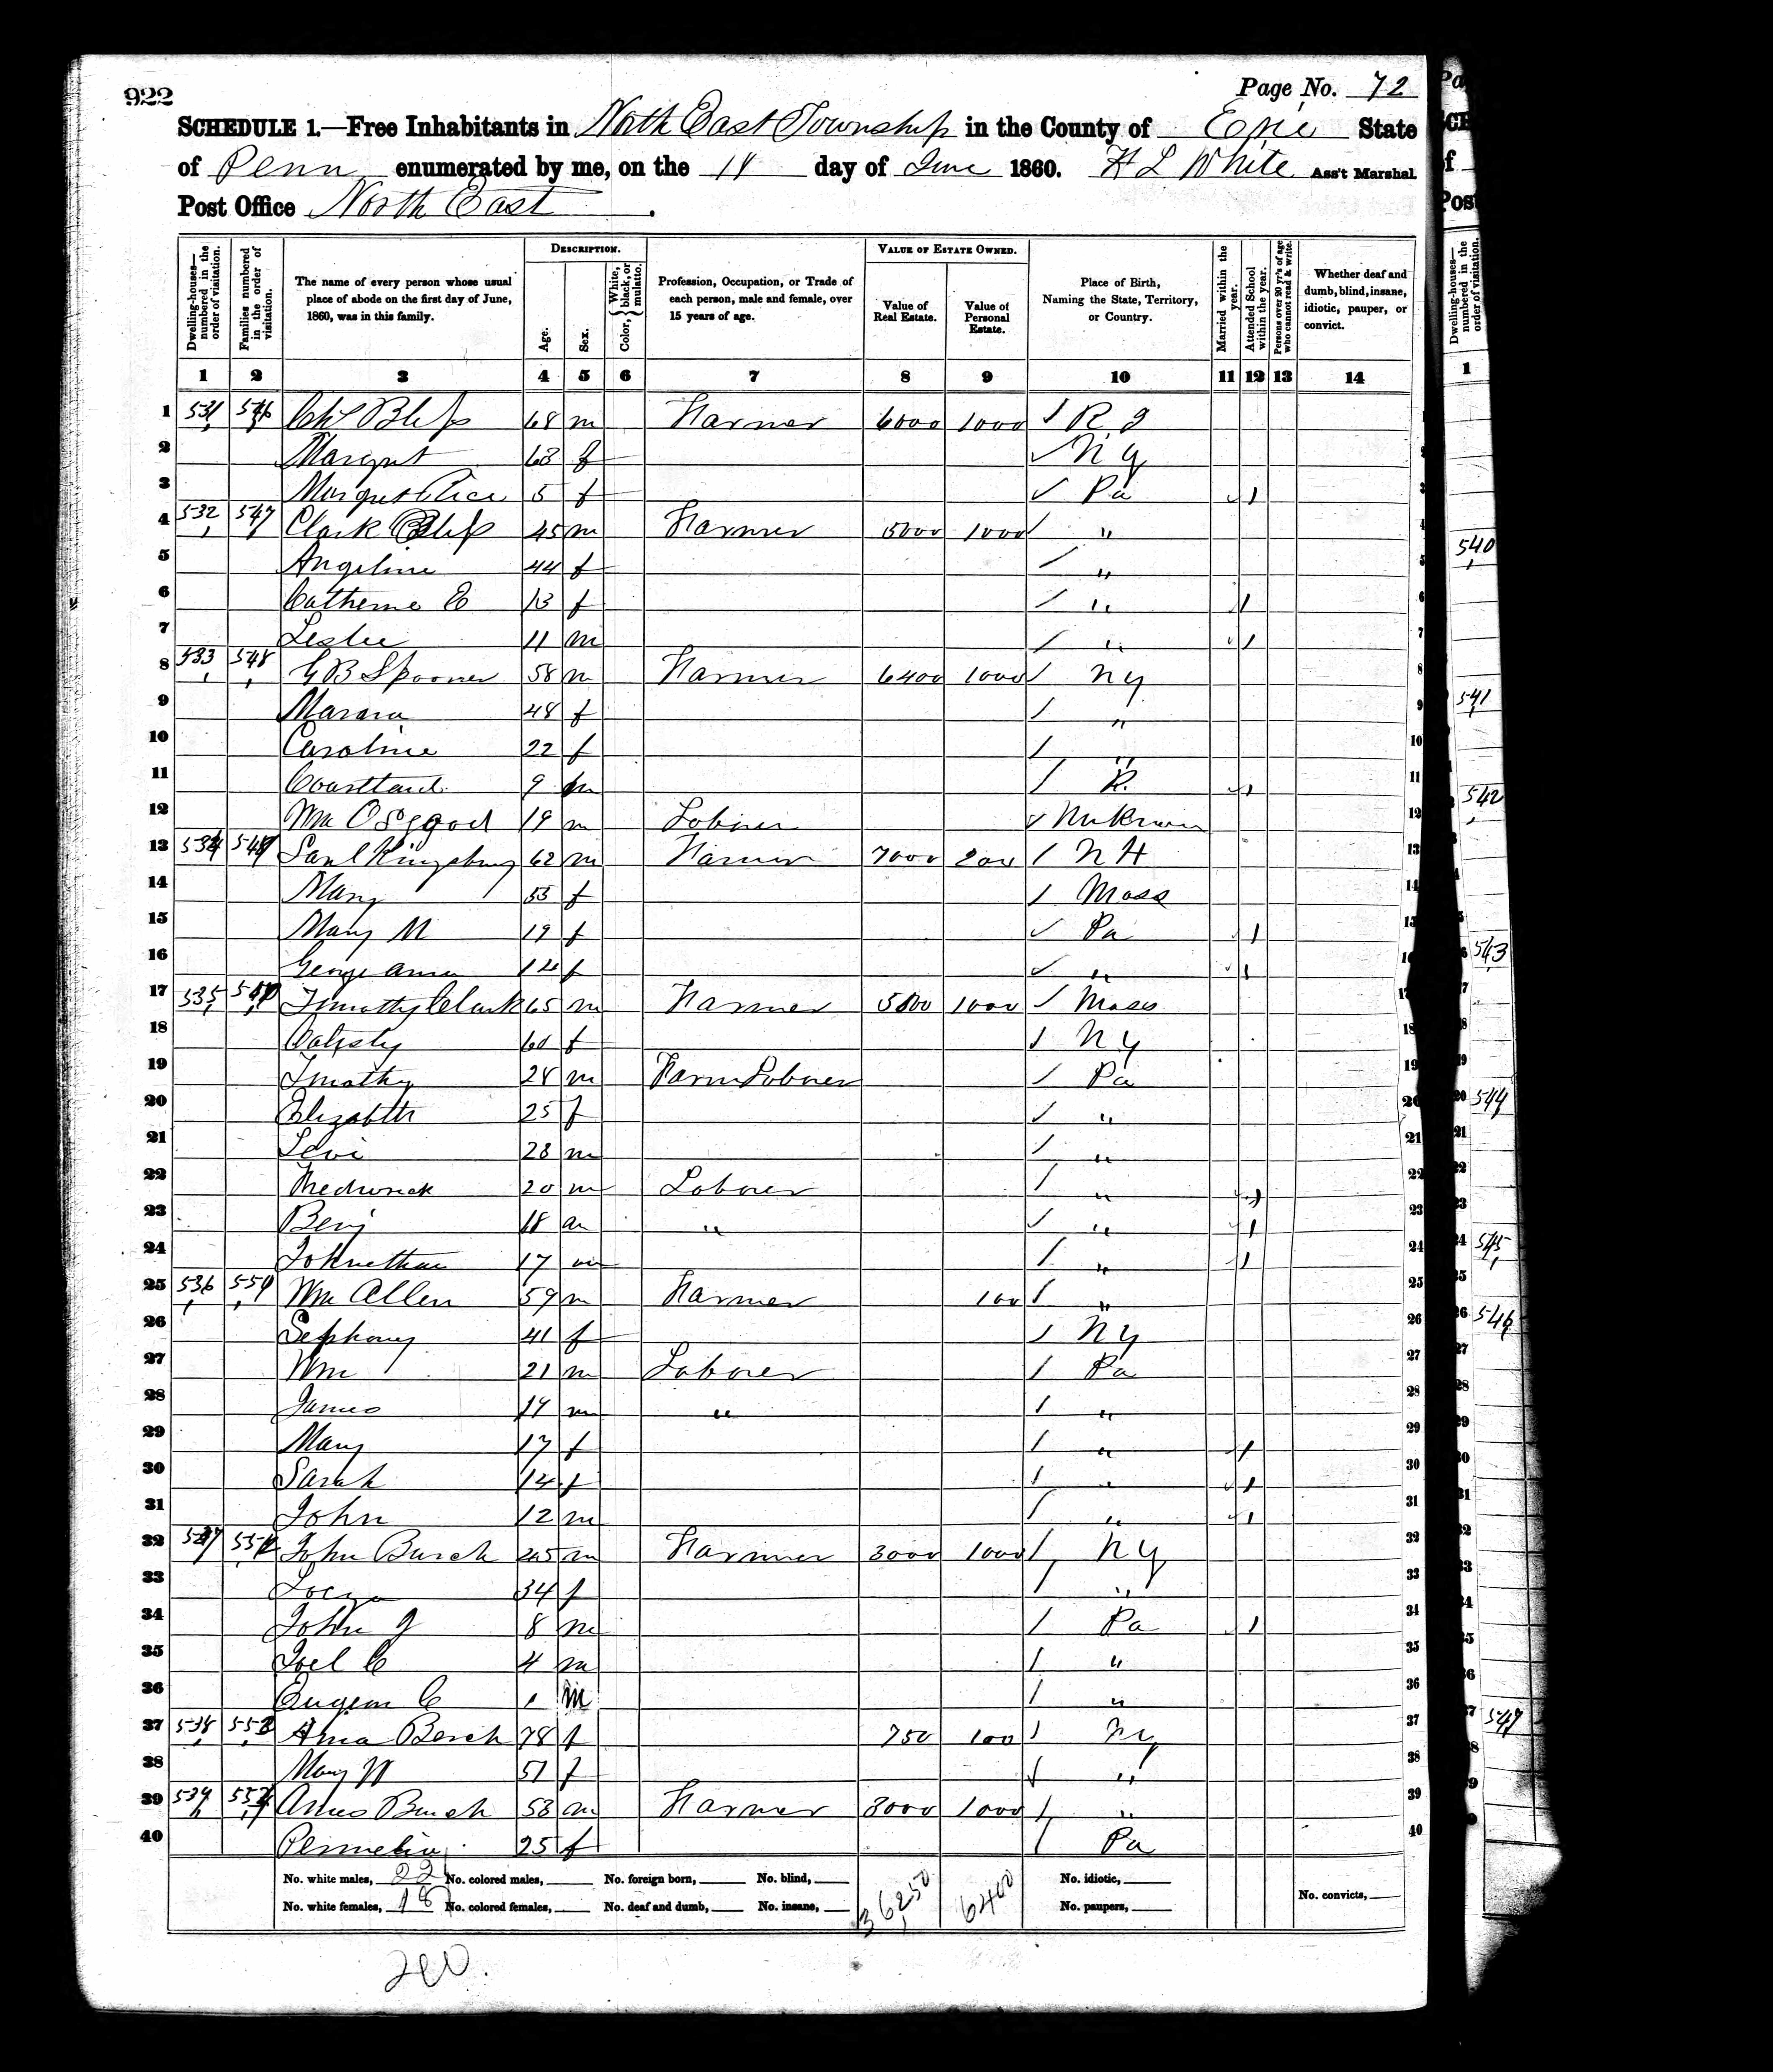 922
Page No. 72
SCHEDULE 1.—Free Inhabitants in North East Township in the County of Erie State
of Penn enumerated by me, on the 18 day of June 1860. H L White Ass't Marshal.
Post Office North East.
Dwelling-houses—numbered in the order of visitation. Families numbered in the order of visitation. The name of every person whose usual place of abode on the first day of June, 1860, was in this family. DESCRIPTION. Age. Sex. Color, White, black, or mulatto. Profession, Occupation, or Trade of each person, male and female, over 15 years of age. VALUE OF ESTATE OWNED. Value of Real Estate. Value of Personal Estate. Place of Birth, Naming the State, Territory, or Country. Married within the year. Attended School within the year. Persons over 20 yr's of age who cannot read & write. Whether deaf and dumb, blind, insane, idiotic, pauper, or convict.
1 2 3 4 5 6 7 8 9 10 11 12 13 14
1 531 546 Bliss 68 m Farmer 6000 1000 / R I
2 Margret 63 f ✓ N Y
3 Margret Alice 5 f ✓ Pa 1
4 532 547 Clark Bliss 45 m Farmer 5000 1000 / "
5 Angeline 44 f / "
6 Catherine E 13 f / " 1
7 Leslie 11 m / " 1
8 533 548 G B Spooner 58 m Farmer 6400 1000 / N Y
9 48 f / "
10 Caroline 22 f / "
11 Courtland 9 m / 1
12 Wm Osgood 19 m Laborer ✓ Unknown
13 534 549 Saml Kingsbury 62 m Farmer 7000 200 / N H
14 Mary 55 f / Mass
15 Mary M 19 f ✓ Pa 1
16 George Anna 14 f ✓ " 1
17 535 550 Timothy Clark 65 m Farmer 5100 1000 / Mass
18 60 f / N Y
19 Timothy 28 m Farm Laborer / Pa
20 Elizabeth 25 f ✓ "
21 Levi 23 m / "
22 Fredrick 20 m Laborer / " 1
23 Benj 18 m " ✓ " 1
24 Johnethan 17 m / " 1
25 536 551 Wm Allen 59 m Farmer 100 / "
26 41 f / N Y
27 Wm 21 m Laborer / Pa
28 James 19 m " / "
29 Mary 17 f / " 1
30 Sarah 14 f / " 1
31 John 12 m / " 1
32 537 552 John Burch 45 m Farmer 3000 1000 / N Y
33 34 f / "
34 John J 8 m / Pa 1
35 Joel C 4 m / "
36 Eugene C 1 m / "
37 538 553 Anna Berch 78 f 750 100 / N Y
38 Mary W 51 f / "
39 539 554 Amos Burch 53 m Farmer 3000 1000 / "
40 Permelia 25 f / Pa
No. white males, 22 No. colored males, No. foreign born, No. blind, 36,250 6400 No. idiotic,
No. white females, 18 No. colored females, No. deaf and dumb, No. insane, No. paupers, No. convicts,
540
541
542
543
544
545
546
547